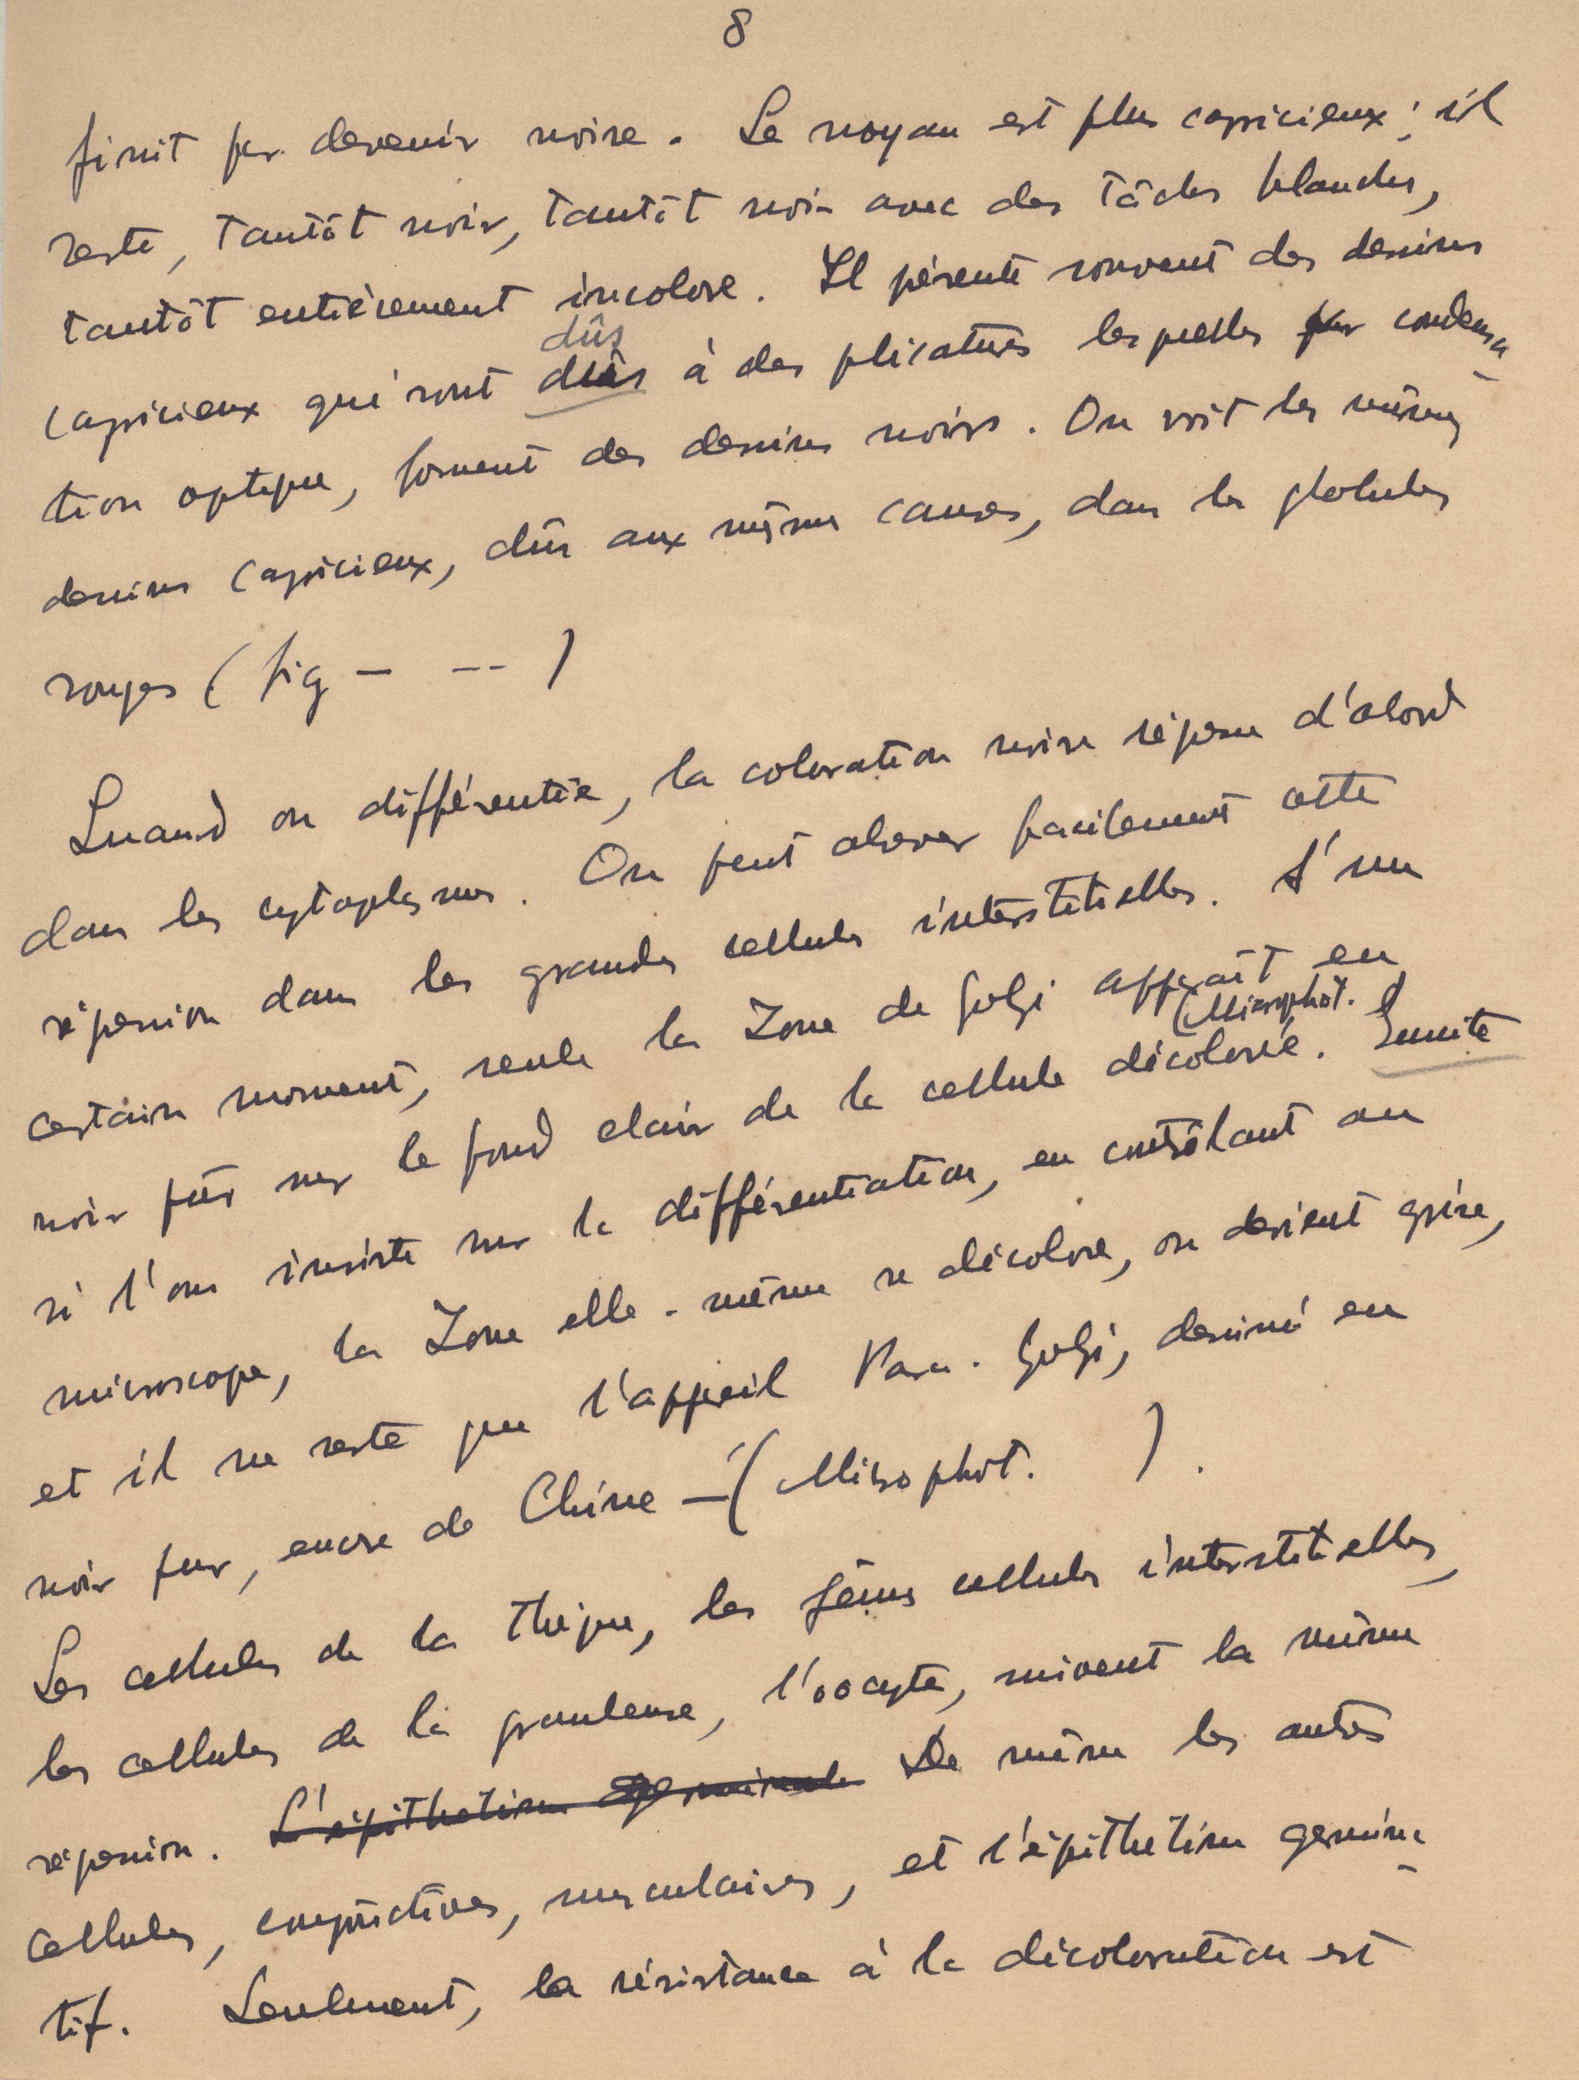 8
finit par devenir noire. Le noyau est plus capricieux; il
reste, tantôt noir, tantôt noir avec des tâches blanches,
tantôt entièrement incolore. Il présente souvent des dessins
dûs
capricieux qui sont dûs à des plicatures lesquelles par condensa-
tion optique, forment des dessins noirs. On voit les mêmes
dessins capricieux, dûs aux mêmes causes, dans les globules
rouges (fig - -- )
Quand on différentie, la coloration noire régresse d'abord
dans les cytoplasmes. On peut observer facilement cette
régression dans les grandes cellules interstitielles. A un
certain moment, seule la Zone de Golgi apparaît en
(Microphot.
noir pur sur le fond clair de la cellule décolorée. Ensuite
si l'on insiste sur la différentiation, en contrôlant au
microscope, la Zone elle-même se décolore, ou devient grise,
et il ne reste que l'appareil Para-Golgi, dessiné en
noir pur, encre de Chine - (Microphot. ).
Les cellules de la thèque, les jeunes cellules interstitielles,
les cellules de la granuleuse, l'oocyte, suivent la même
régression. L'épithelium germinale De même les autres
cellules, conjonctives, musculaires, et l'épithelium germina-
tif. Seulement, la résistance à la décoloration est